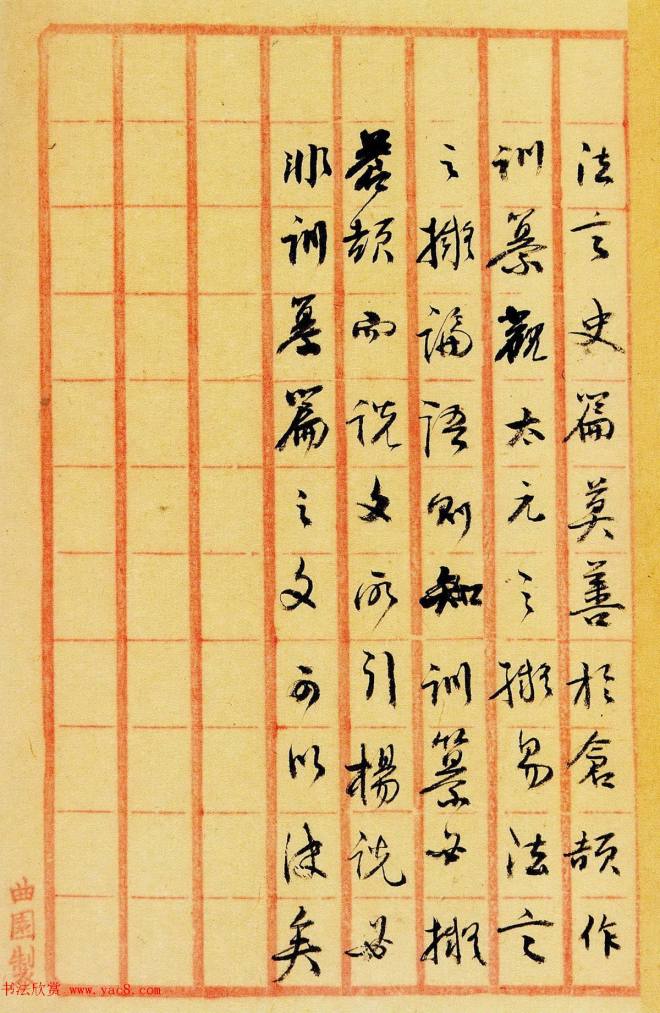 法言史篇莫善於倉頡作
訓纂觀太元之擬易法言
之擬論語則知訓纂必擬
蒼頡而説文所引楊説必
非訓纂篇之文可以決矣
曲園製
书法欣赏 www.yac8.com